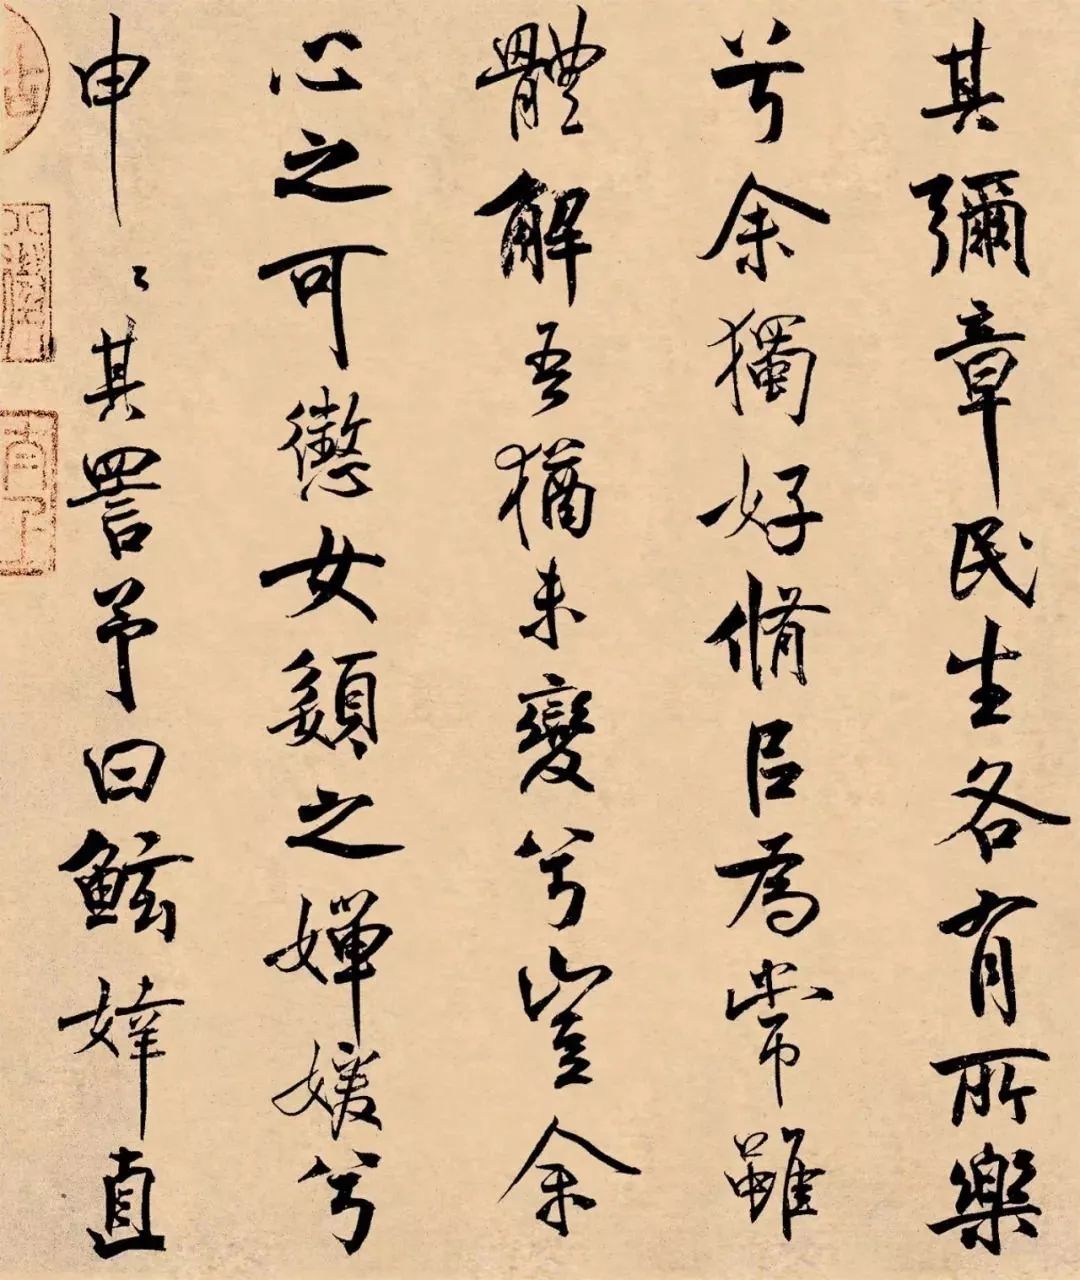 其彌章民生各有所樂
兮余獨好脩㠯為常雖
體解吾猶未變兮豈余
心之可懲女嬃之嬋媛兮
申〻其詈予曰鮌婞直